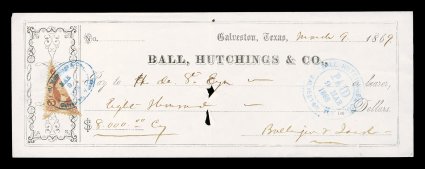 No. Galveston, Texas, March 9 1869
BALL, HUTCHINGS & CO.
Pay to H de St. Cyr or bearer,
Eight Thousand Dollars.
$8,000.00 Cy Ballinger & Jack
PAID
MAR